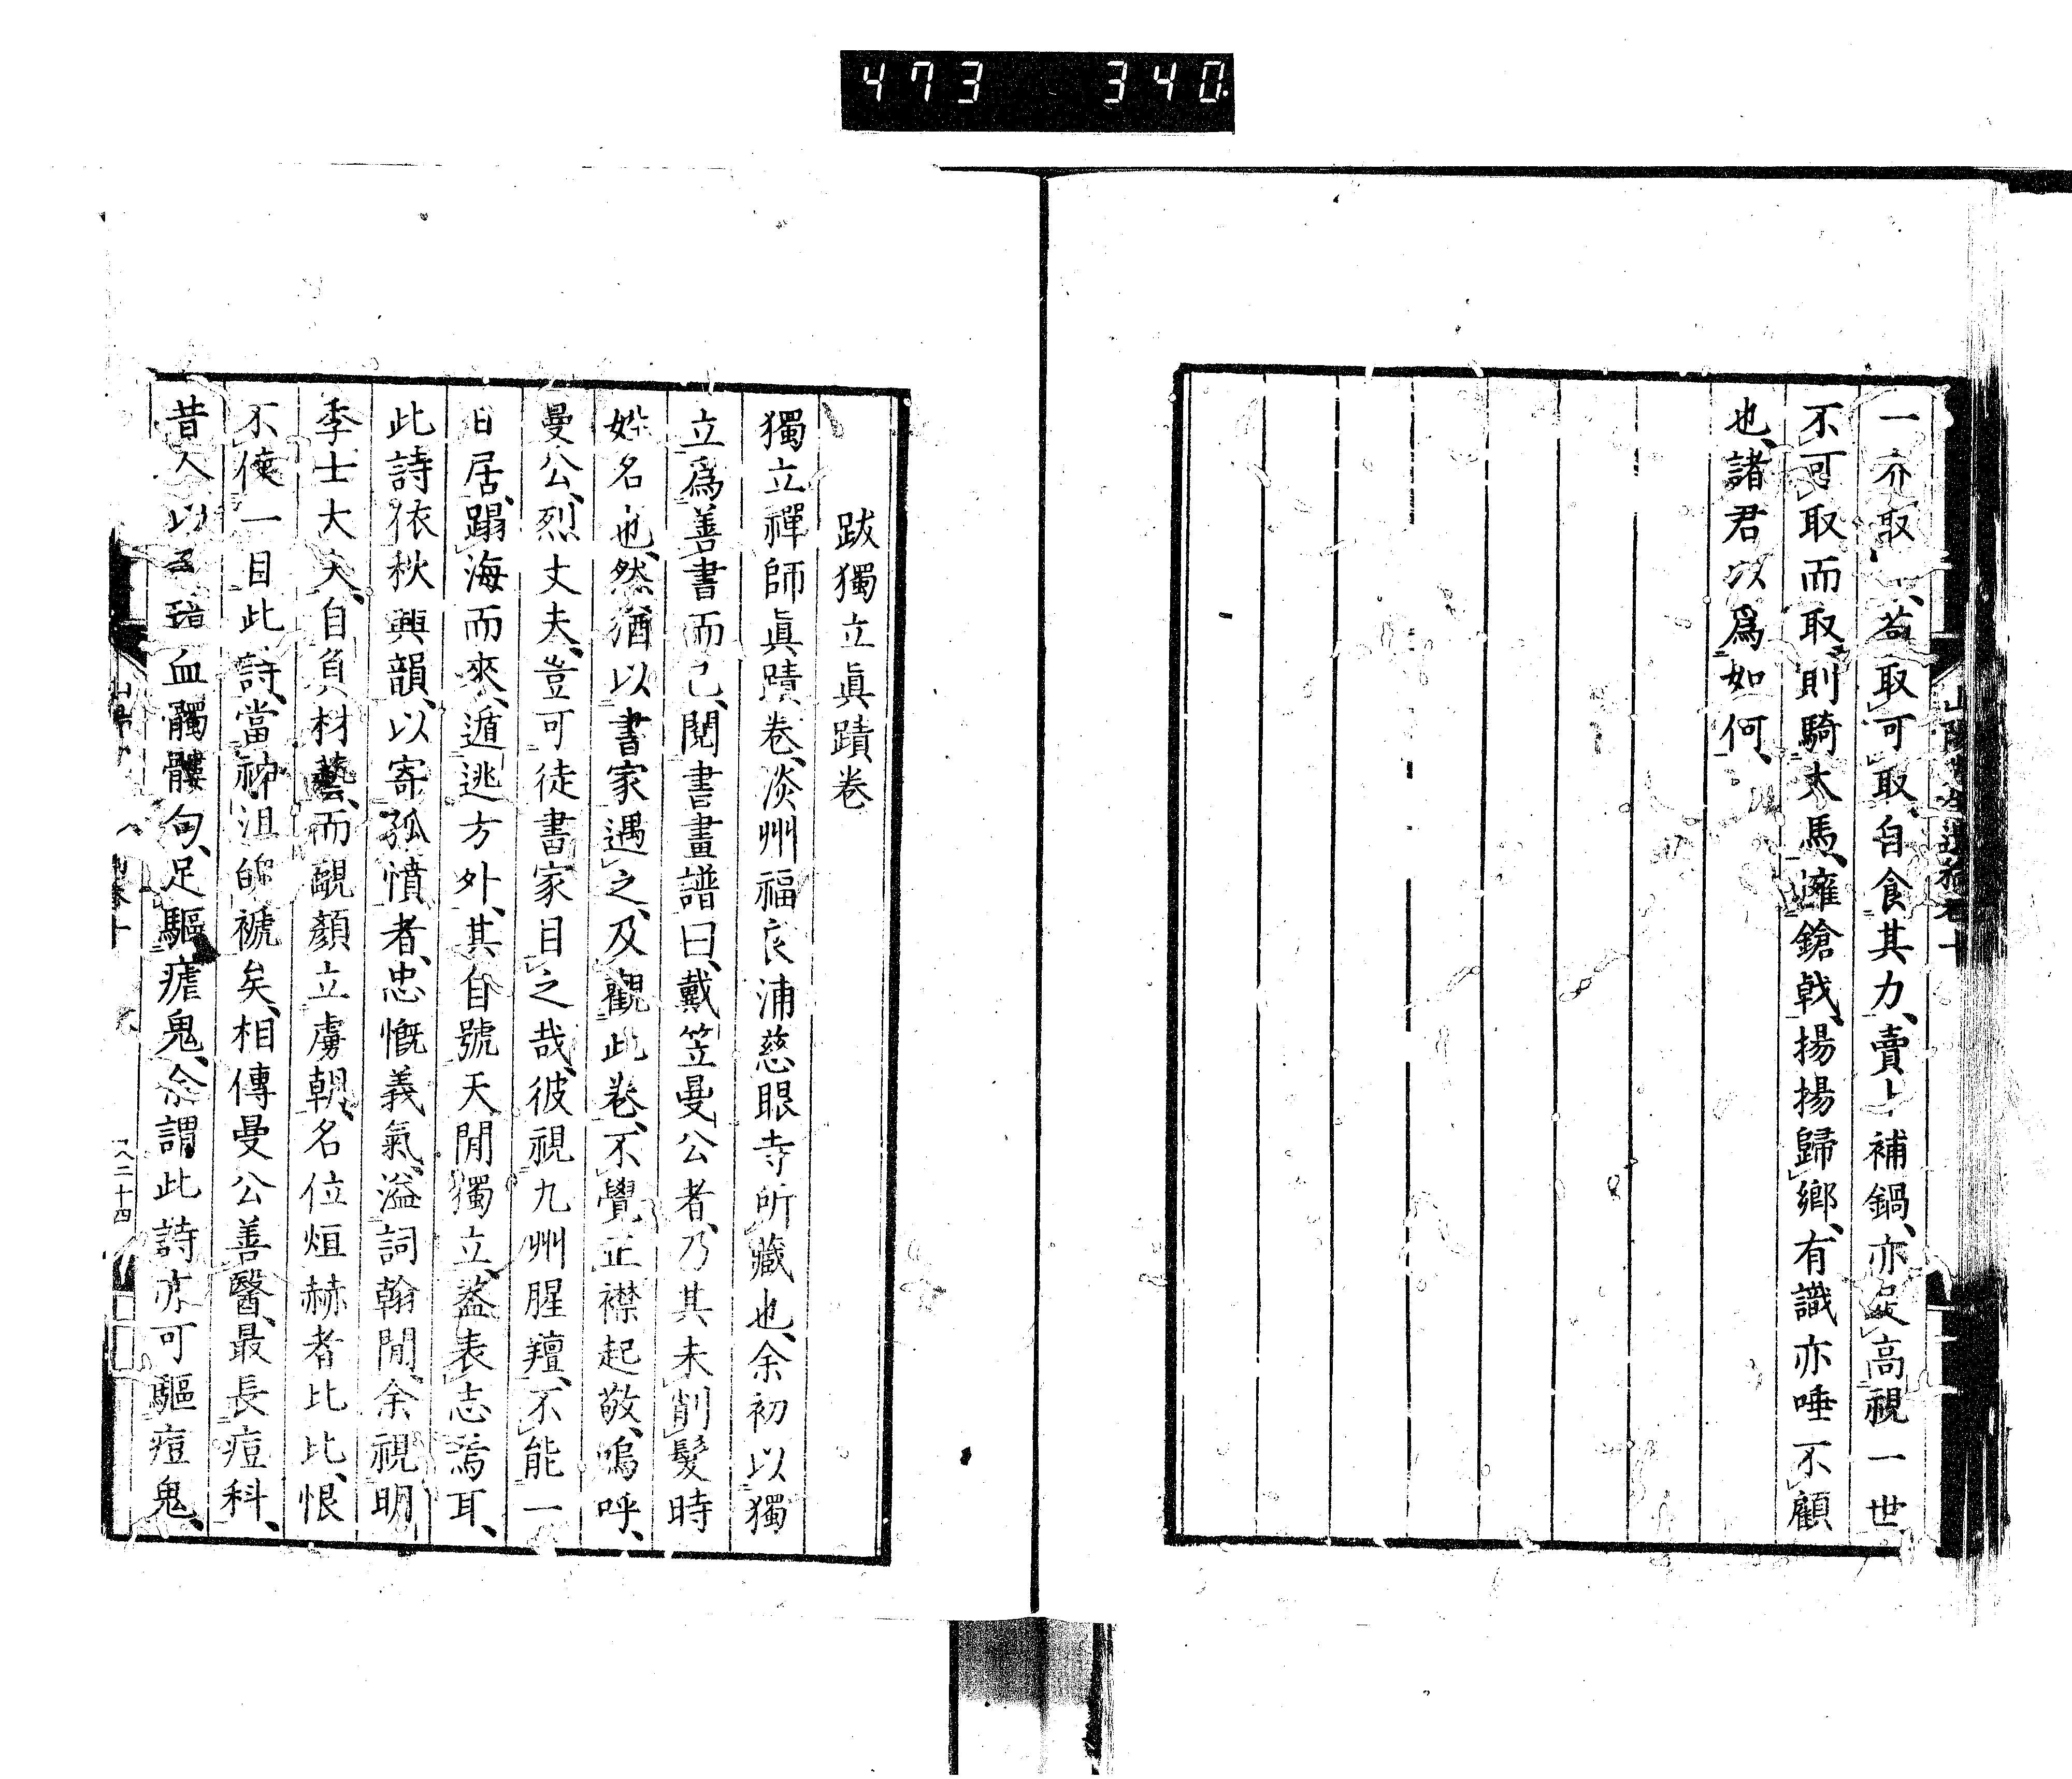 473 340
一介取、苟取可取、自食其力、賣卜補鍋、亦足高視一世、
不可取而取、則騎大馬、擁鎗戟、揚揚歸鄉、有識亦唾不顧
也、諸君以爲如何、
跋獨立眞蹟卷
獨立禪師眞蹟卷、淡州福良浦慈眼寺所藏也、余初以獨
立爲善書而已、閱書畫譜曰、戴笠曼公者、乃其未削髮時
姓名也、然猶以書家遇之、及觀此卷、不覺正襟起敬、嗚呼、
曼公、烈丈夫、豈可徒書家目之哉、彼視九州腥羶、不能一
日居、蹋海而來、遁逃方外、其自號天閒獨立、蓋表志焉耳、
此詩依秋興韻、以寄孤憤者、忠慨義氣、溢詞翰閒、余視明
季士大夫、自負材藝、而靦顏立虜朝、名位烜赫者比比、恨
不使一目此詩、當神沮魄褫矣、相傳曼公善醫、最長痘科、
昔人以子璋血髑髏句、足驅瘧鬼、余謂此詩亦可驅痘鬼、
二十四